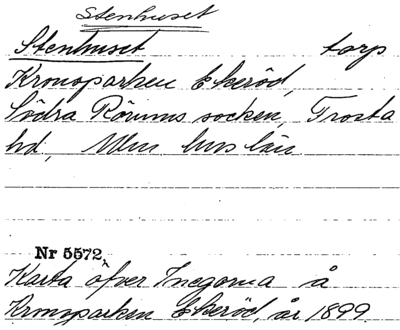 Stenhuset
Stenhuset torp
Kronoparken Ekeröd,
Södra Rörums socken, Frosta
hd, Mlm hus län
Nr 5572.
Karta öfver Inegorna å
Kronoparken Ekeröd, år 1899